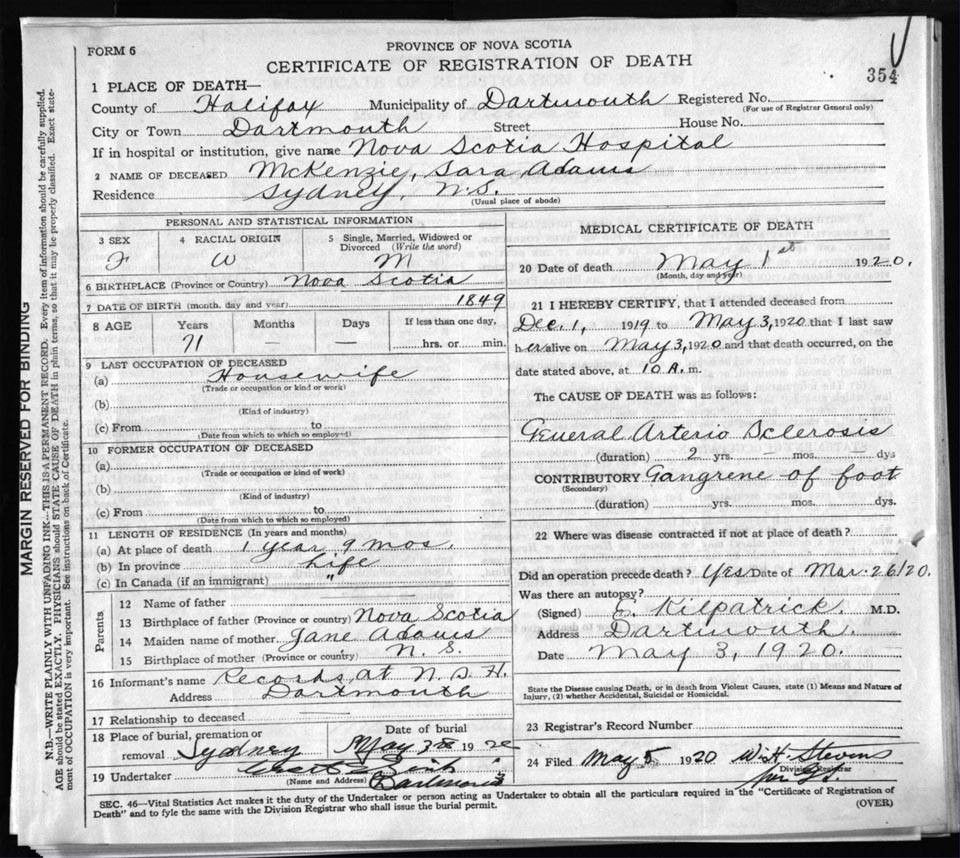 FORM 6
PROVINCE OF NOVA SCOTIA
CERTIFICATE OF REGISTRATION OF DEATH
354
1 PLACE OF DEATH—
County of Halifax Municipality of Dartmouth Registered No.
(For use of Registrar General only)
City or Town Dartmouth Street House No.
If in hospital or institution, give name Nova Scotia Hospital
2 NAME OF DECEASED McKenzie, Sara Adams
Residence Sydney, N.S.
(Usual place of abode)
PERSONAL AND STATISTICAL INFORMATION
3 SEX 4 RACIAL ORIGIN 5 Single, Married, Widowed or
Divorced (Write the word)
F W M
6 BIRTHPLACE (Province or Country) Nova Scotia
7 DATE OF BIRTH (month, day and year) 1849
8 AGE Years Months Days If less than one day,
71 — — hrs. or min.
9 LAST OCCUPATION OF DECEASED
(a) Housewife
(Trade or occupation or kind of work)
(b)
(Kind of industry)
(c) From to
(Date from which to which so employed)
10 FORMER OCCUPATION OF DECEASED
(a)
(Trade or occupation or kind of work)
(b)
(Kind of industry)
(c) From to
(Date from which to which so employed)
11 LENGTH OF RESIDENCE (In years and months)
(a) At place of death 1 year 9 mos.
(b) In province Life
(c) In Canada (if an immigrant) "
Parents
12 Name of father —
13 Birthplace of father (Province or country) Nova Scotia
14 Maiden name of mother Jane Adams
15 Birthplace of mother (Province or country) N.S.
16 Informant's name Records at N.S.H.
Address Dartmouth
17 Relationship to deceased —
18 Place of burial, cremation or Date of burial
removal Sydney May 3rd 1920
19 Undertaker
(Name and Address) Dartmouth
MEDICAL CERTIFICATE OF DEATH
20 Date of death May 1st 1920.
(Month, day and year)
21 I HEREBY CERTIFY, that I attended deceased from
Dec. 1, 1919 to May 3, 1920 that I last saw
her alive on May 3, 1920 and that death occurred, on the
date stated above, at 10 A. m.
The CAUSE OF DEATH was as follows:
General Arterio Sclerosis
(duration) 2 yrs. — mos. — dys
CONTRIBUTORY Gangrene of foot
(Secondary)
(duration) yrs. mos. dys.
22 Where was disease contracted if not at place of death?
Did an operation precede death? Yes Date of Mar. 26/20.
Was there an autopsy?
(Signed) E. Kilpatrick. M.D.
Address Dartmouth.
Date May 3, 1920.
State the Disease causing Death, or in death from Violent Causes, state (1) Means and Nature of
Injury, (2) whether Accidental, Suicidal or Homicidal.
23 Registrar's Record Number
24 Filed May 5 1920 Stevens
Division Registrar
SEC. 46—Vital Statistics Act makes it the duty of the Undertaker or person acting as Undertaker to obtain all the particulars required in the "Certificate of Registration of
Death" and to fyle the same with the Division Registrar who shall issue the burial permit.
(OVER)
MARGIN RESERVED FOR BINDING
N.B.—WRITE PLAINLY WITH UNFADING INK—THIS IS A PERMANENT RECORD. Every item of information should be carefully supplied.
AGE should be stated EXACTLY. PHYSICIANS should STATE CAUSE OF DEATH in plain terms, so that it may be properly classified. Exact state-
ment of OCCUPATION is very important. See instructions on back of Certificate.